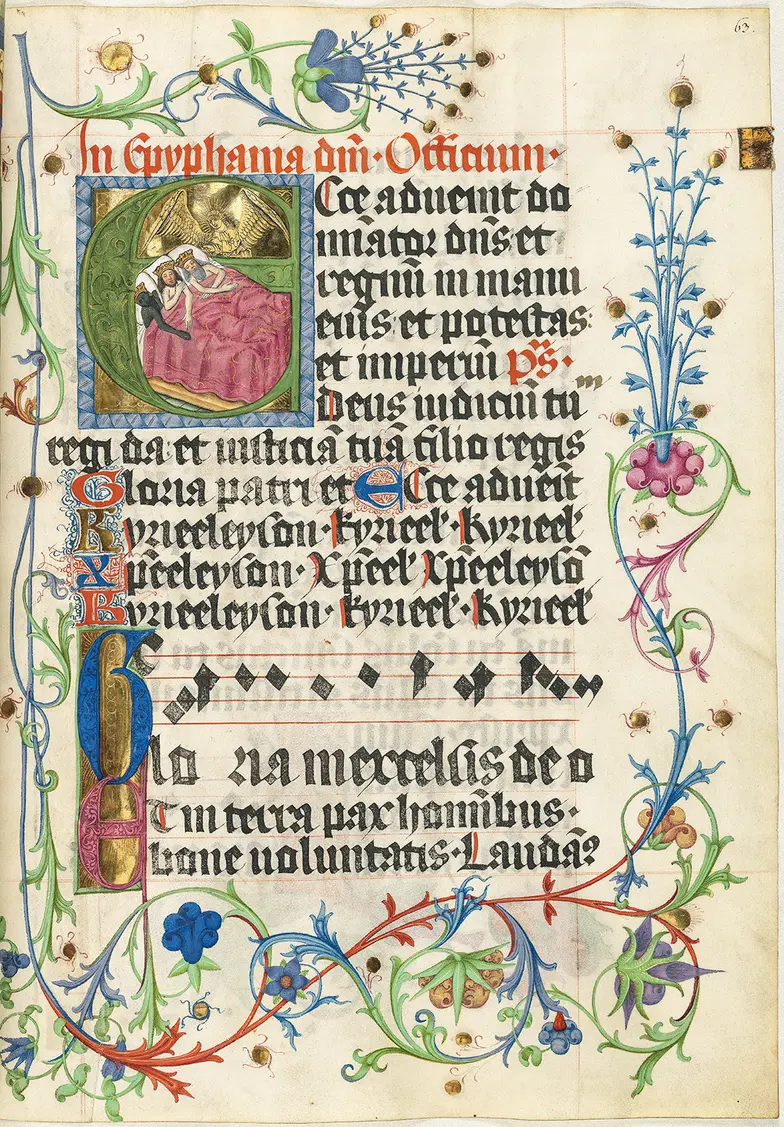 63.
In Epyphania dm̄·Officium·
Ecce aduenit do
minator dn̄s: et
regnū in manu
eius: et potestas:
et imperiū p̄s·
Deus iudiciū tuᵐ
regi da: et iusticiā tuā filio regis
Gloria patri et Ecce adueīt
Kyrieeleyson·kyrieel'·Kyrieel'
Xp̄eeleyson·Xp̄eel' Xp̄eeleysō
Kyrieeleyson·kyrieel'·Kyrieel'
Gloria in excelsis deo
Et in terra pax homībus·
bone uoluntatis·Laudā⁹